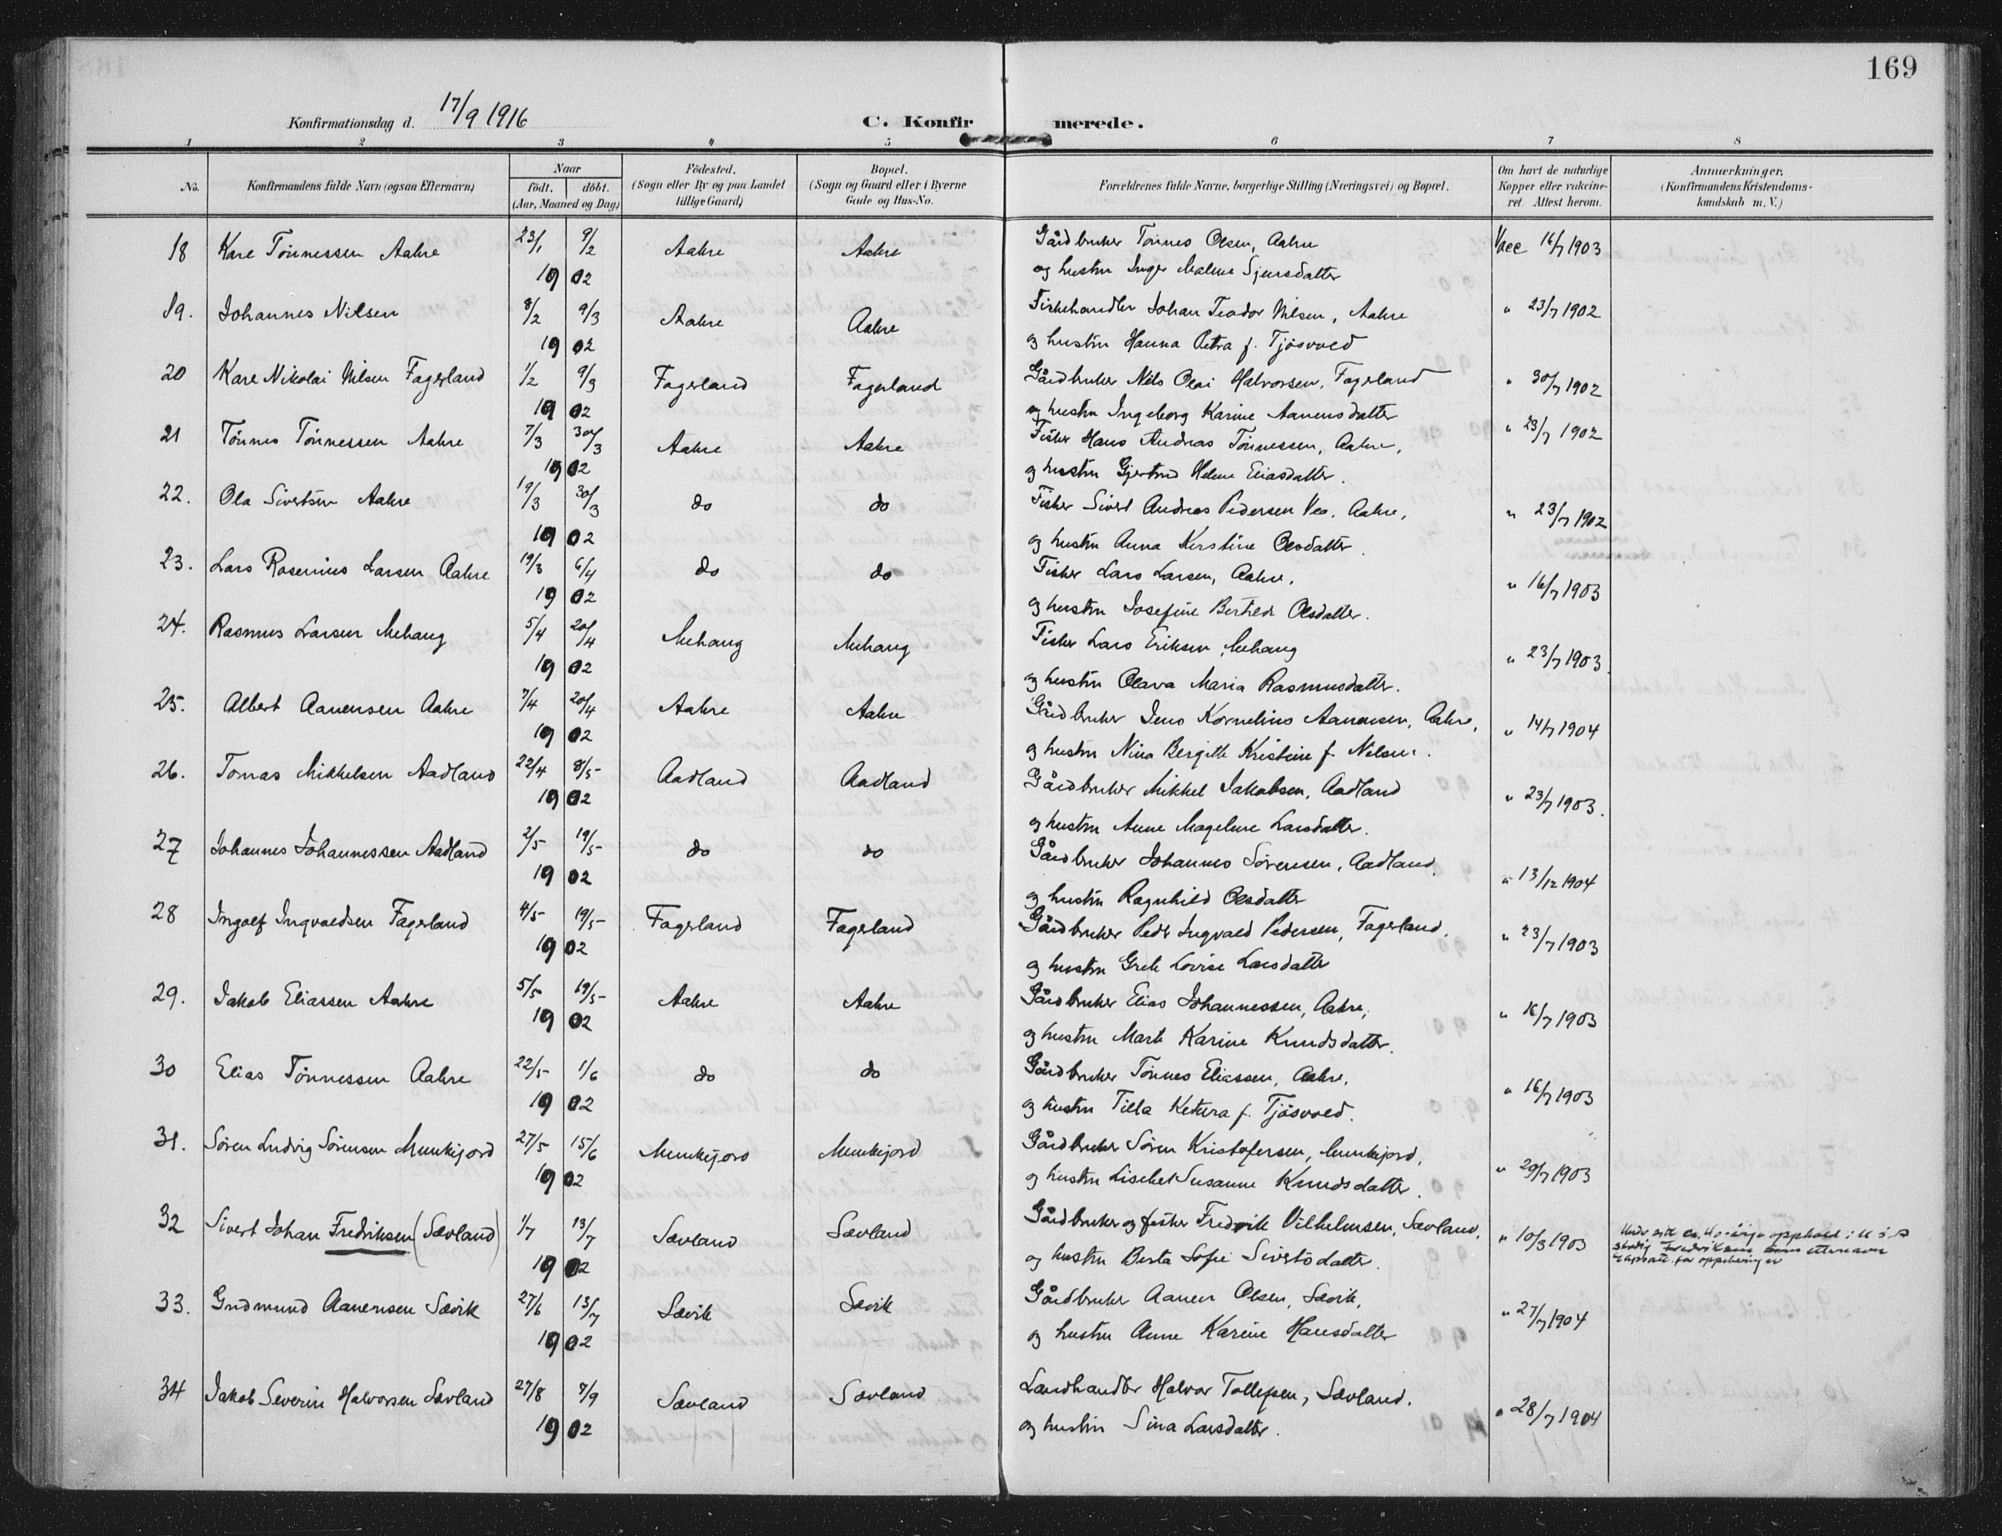 169
Konfirmationsdag d. 17/9 1916
C. Konfirmerede.
1 2 3 4 5 6 7 8
No. Konfirmandens fulde Navn (ogsaa Efternavn) Naar født. døbt. (Aar, Maaned og Dag) Födested. (Sogn eller By og paa Landet tillige Gaard) Bopæl. (Sogn og Gaard eller i Byerne Gade og Hus-No. Forældrenes fulde Navne, borgerlige Stilling (Næringsvei) og Bopæl. Om havt de naturlige Kopper eller vaccineret. Attest herom. Anmærkninger. (Konfirmandens Kristendomskundskab m. V.)
18 Kare Tönnessen Aakre 23/1 9/2 Aakre Aakre Gårdbruker Tönnes Olsen, Aakre Vacc 16/7 1903
19 02 og hustru Inger Malene Sjursdatter
19. Johannes Nilsen 8/2 9/3 Aakre Aakre Fiskehandler Johan Teodor Nilsen, Aakre " 23/7 1902
19 02 og hustru Hanna Petra f. Tjösvold
20 Kare Nikolai Nilsen Fagerland 1/2 9/3 Fagerland Fagerland Gårdbruker Nils Olai Halvorsen, Fagerland " 30/7 1902
19 02 og hustru Ingeborg Karine Aanensdatter
21 Tönnes Tönnessen Aakre 7/3 30/3 Aakre Aakre Fisker Hans Andreas Tönnessen, Aakre, " 23/7 1902
19 02 og hustru Gjertrud Helene Eliasdatter.
22. Ola Sivertsen Aakre 19/3 30/3 do do Fisker Sivert Andreas Pedersen Vea, Aakre, " 23/7 1902
19 02 og hustru Anna Kirstine Olsdatter.
23. Lars Rasenius Larsen Aakre 19/3 6/4 do do Fisker Lars Larsen, Aakre, " 16/7 1903
19 02 og hustru Josefine Bertilde Olsdatter.
24. Rasmus Larsen Mehaug 5/4 20/4 Mehaug Mehaug Fisker Lars Eriksen, Mehaug " 23/7 1903
19 02 og hustru Olava Maria Rasmusdatter.
25. Albert Aanensen Aakre 7/4 20/4 Aakre Aakre Gårdbruker Jens Kornelius Aanensen, Aakre, " 14/7 1904
19 02 og hustru Nina Bergitte Kristine f. Nilsen.
26. Tomas Mikkelsen Aadland 22/4 8/5 Aadland Aadland Gårdbruker Mikkel Jakobsen, Aadland " 23/7 1903.
19 02 og hustru Anne Magelene Larsdatter.
27 Johannes Johannessen Aadland 2/5 19/5 do do Gårdbruker Johannes Sörensen, Aadland, " 13/12 1904
19 02 og hustru Ragnhild Olsdatter
28 Ingolf Ingvaldsen Fagerland 4/5 19/5 Fagerland Fagerland Gårdbruker Peder Ingvald Pedersen, Fagerland. " 23/7 1903
19 02 og hustru Grete Lovise Larsdatter
29. Jakob Eliassen Aakre 5/5 19/5 Aakre Aakre Gårdbruker Elias Johannessen, Aakre, " 16/7 1903
19 02 og hustru Marte Karine Knudsdatter.
30 Elias Tönnessen Aakre 22/5 1/6 do do Gårdbruker Tönnes Eliassen, Aakre, " 16/7 1903
19 02 og hustru Tilla Ketura f. Tjösvold.
31. Sören Ludvig Sörensen Munkejord 27/5 15/6 Munkejord Munkejord Gårdbruker Sören Kristofersen, Munkejord, " 29/7 1903
19 02 og hustru Lisebet Susanne Knudsdatter.
32 Sivert Johan Fredriksen (Sævland) 1/7 13/7 Sævland Sævland Gårdbruker og fisker Fredrik Vilhelmsen, Sævland, " 10/3 1903 Under sitt ca. 40-årige opphold i U.S.A
19 02 og hustru Berta Sofie Sivertsdatter. stadig Fredriksen som etternavn
33. Gudmund Aanensen Sævik 27/6 13/7 Sævik Sævik Gårdbruker Aanen Olsen, Sævik, " 27/7 1904
19 02 og hustru Anne Karine Hansdatter
34 Jakob Severin Halvorsen Sævland 27/8 7/9 Sævland Sævland Landhandler Halvor Tollefsen, Sævland. " 28/7 1904
19 02 og hustru Sina Larsdatter.